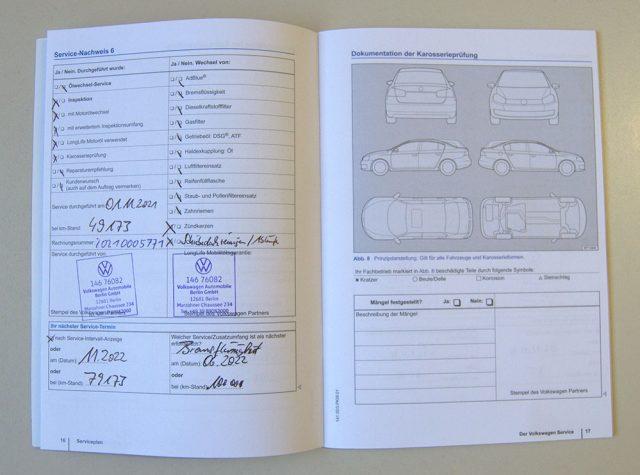 Service-Nachweis 6
Ja / Nein. Durchgeführt wurde:
Ölwechsel-Service
Inspektion
mit Motorölwechsel
mit erweitertem Inspektionsumfang
LongLife Motoröl verwendet
Karosserieprüfung
Reparaturempfehlung
Kundenwunsch
(auch auf dem Auftrag vermerken)
Service durchgeführt am: 01.11.2021
bei km-Stand: 49173
Rechnungsnummer:
Service durchgeführt von:
146 76082
Volkswagen Automobile
Berlin GmbH
12681 Berlin
Marzahner Chaussee 234
Stempel des Volkswagen Partners
Ja / Nein. Wechsel von:
AdBlue®
Bremsflüssigkeit
Dieselkraftstofffilter
Gasfilter
Getriebeöl: DSG®, ATF
Haldexkupplung: Öl
Luftfiltereinsatz
Reifenfüllflasche
Staub- und Pollenfiltereinsatz
Zahnriemen
Zündkerzen
LongLife Mobilitätsgarantie:
146 76082
Volkswagen Automobile
Berlin GmbH
12681 Berlin
Marzahner Chaussee 234
Stempel des Volkswagen Partners
Ihr nächster Service-Termin
nach Service-Intervall-Anzeige
oder
am (Datum): 11.2022
oder
bei (km-Stand): 79173
Welcher Service/Zusatzumfang ist als nächster
erforderlich?
Bremsflüssigkeit
am (Datum): 06.2022
oder
bei (km-Stand):
16 Serviceplan
Dokumentation der Karosserieprüfung
Abb. 8 Prinzipdarstellung. Gilt für alle Fahrzeuge und Karosserieformen.
Ihr Fachbetrieb markiert in Abb. 8 beschädigte Teile durch folgende Symbole:
Kratzer Beule/Delle Korrosion Steinschlag
Mängel festgestellt? Ja: Nein:
Beschreibung der Mängel:
Stempel des Volkswagen Partners
Der Volkswagen Service 17